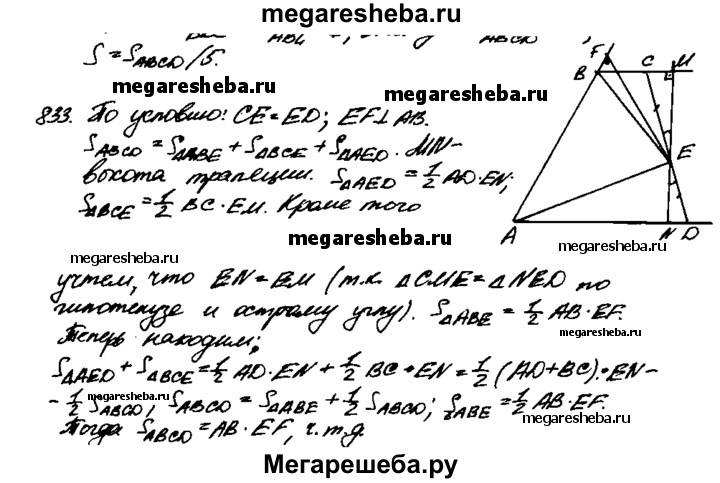 megaresheba.ru
S = S_ABCD/5.
megaresheba.ru
megaresheba.ru
833. По условию: CE = ED; EF⊥AB.
S_ABCD = S_ΔABE + S_ΔBCE + S_ΔAED. MN-
высота трапеции. S_ΔAED = 1/2 AD·EN;
S_ΔBCE = 1/2 BC·EM. Кроме того
F
B
C
M
E
A
N
D
megaresheba.ru
megaresheba.ru
megaresheba.ru
учтем, что EN = EM (т.к. ΔCME = ΔNED по
гипотенузе и острому углу). S_ΔABE = 1/2 AB·EF.
Теперь находим:
megaresheba.ru
megaresheba.ru
S_ΔAED + S_ΔBCE = 1/2 AD·EN + 1/2 BC·EN = 1/2 (AD+BC)·EN-
- 1/2 S_ABCD; S_ABCD = S_ΔABE + 1/2 S_ABCD; S_ABE = 1/2 AB·EF.
megaresheba.ru
megaresheba.ru
Тогда S_ABCD = AB·EF, ч.т.д.
megaresheba.ru
Мегарешеба.ру